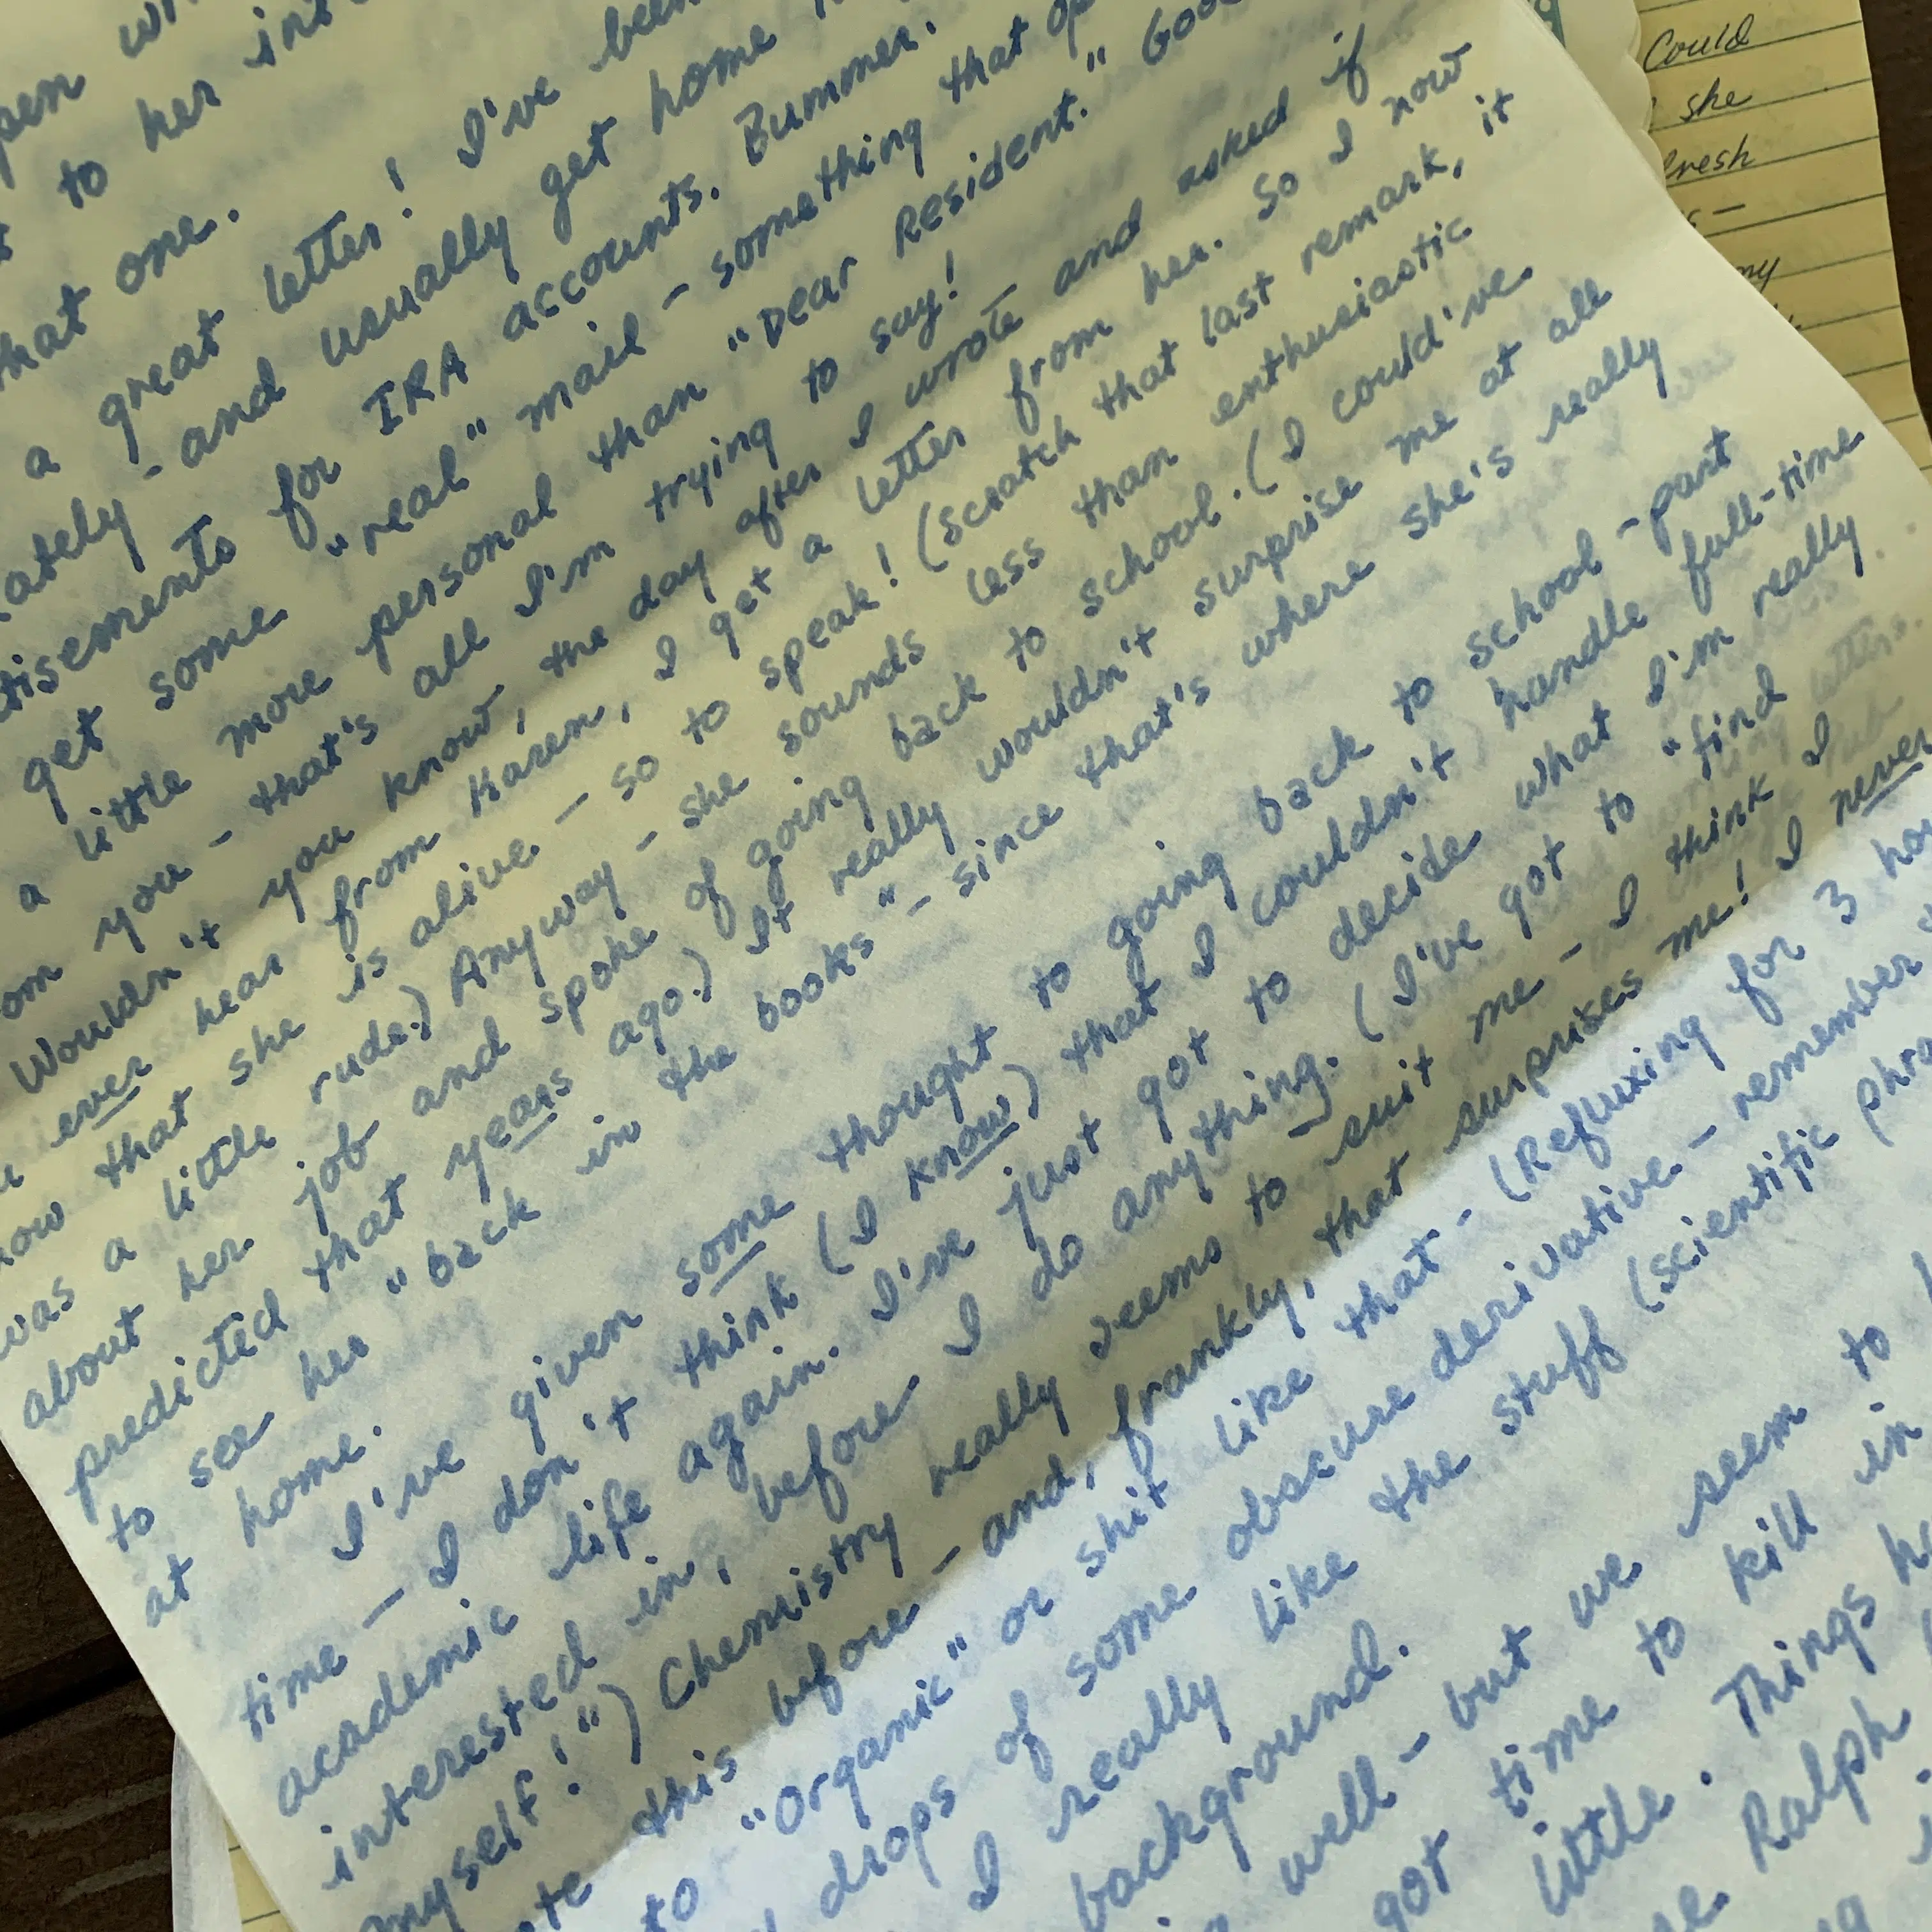 pen
to her int
hat one.
a great letter! I've been
ately - and usually get home
tisements for IRA accounts. Bummer.
get some "real" mail - something that
a little more personal than "Dear Resident."
om you - that's all I'm trying to say!
Wouldn't you know, the day after I wrote and asked if
ever hear from Karen, I get a letter from her. So I now
now that she is alive - so to speak! (Scratch that last remark, it
was a little rude.) Anyway - she sounds less than enthusiastic
about her job and spoke of going back to school. (I could've
predicted that years ago.) It really wouldn't surprise me at all
to see her "back in the books" - since that's where she's really
at home.
I've given some thought to going back to school - part
time - I don't think (I know) that I couldn't handle full-time
academic life again. I've just got to decide what I'm really
interested in, before I do anything. (I've got to "find
myself!") Chemistry really seems to suit me - I think I
te this before - and, frankly, that surprises me! I never
to "Organic" or shit like that - (Refluxing for 3 hou
drops of some obscure derivative - remember
I really like the stuff (scientific phra
background.
well - but we seem to
got time to kill in
little. Things ha
Ralph
Could
she
resh
my